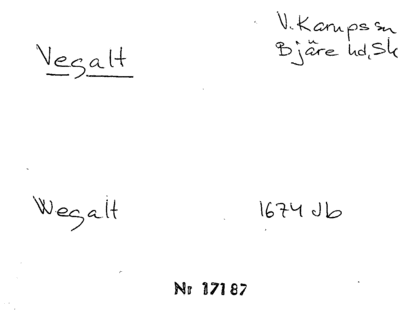 Vegalt
V. Karups sn
Bjäre hd, Sk
Wegalt 1674 Jb
Nr 17187